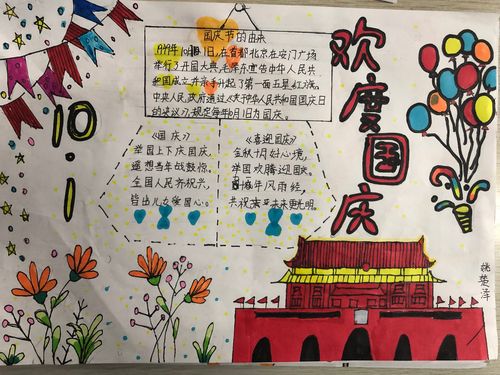 国庆节的由来
1949年10月1日，在首都北京在安门广场
举行了开国大典，毛泽东宣告中华人民共
和国成立并亲手升起了第一面五星红旗。
中央人民政府通过《关于中华人民共和国国庆日
的决议》，规定每年10月1日为国庆。
欢度国庆
10·1
《国庆》
举国上下庆国庆，
遥想当年战鼓惊。
全国人民齐祝共，
皆出儿女爱国心。
《喜迎国庆》
金秋十月好心境，
举国欢腾迎国庆。
年风雨经，
共祝未来更光明。
姚楚泽